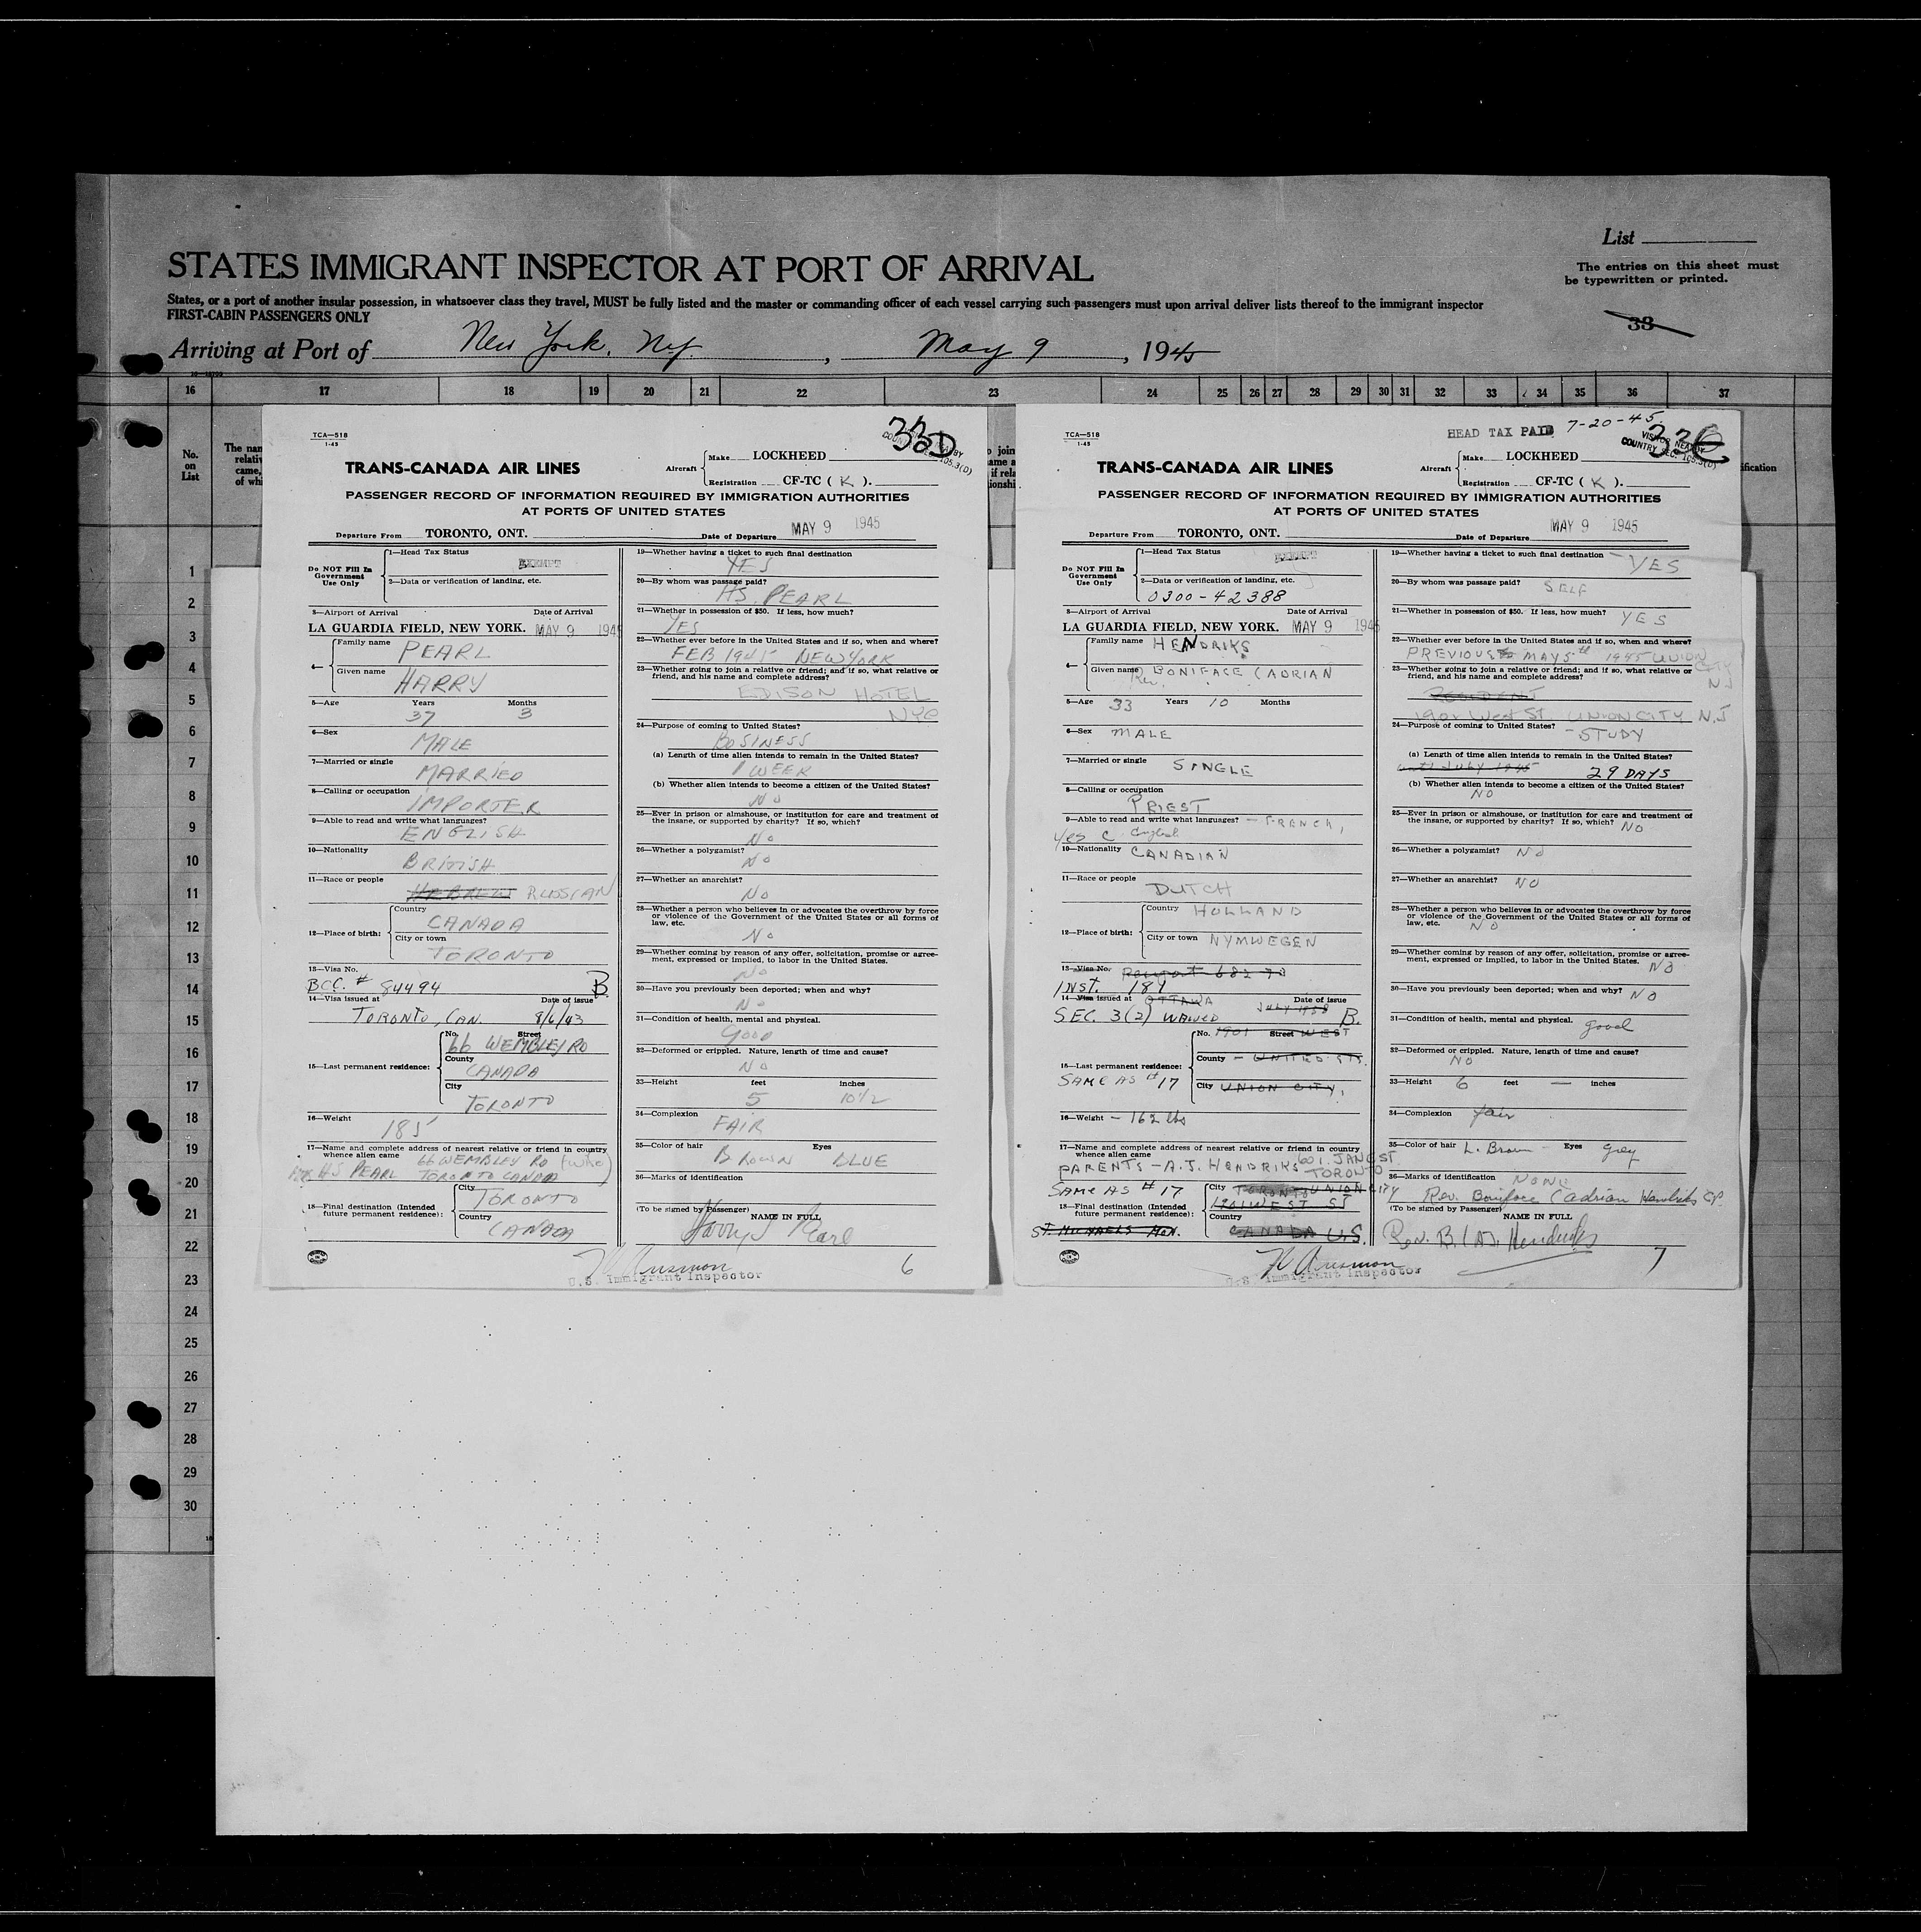 List
STATES IMMIGRANT INSPECTOR AT PORT OF ARRIVAL
The entries on this sheet must
be typewritten or printed.
States, or a port of another insular possession, in whatsoever class they travel, MUST be fully listed and the master or commanding officer of each vessel carrying such passengers must upon arrival deliver lists thereof to the immigrant inspector
FIRST-CABIN PASSENGERS ONLY
33
Arriving at Port of New York, Ny., May 9, 1945
16 17 18 19 20 21 22 23 24 25 26 27 28 29 30 31 32 33 34 35 36 37
No.
on
List
1
2
3
4
5
6
7
8
9
10
11
12
13
14
15
16
17
18
19
20
21
22
23
24
25
26
27
28
29
30
TCA—518
1-45
33D
TRANS-CANADA AIR LINES
Aircraft
Make LOCKHEED
Registration CF-TC ( K ).
PASSENGER RECORD OF INFORMATION REQUIRED BY IMMIGRATION AUTHORITIES
AT PORTS OF UNITED STATES
Departure From TORONTO, ONT. Date of Departure MAY 9 1945
Do NOT Fill In
Government
Use Only
1—Head Tax Status EXEMPT
2—Data or verification of landing, etc.
3—Airport of Arrival Date of Arrival
LA GUARDIA FIELD, NEW YORK. MAY 9 1945
4—
Family name PEARL
Given name HARRY
5—Age Years Months
37 3
6—Sex MALE
7—Married or single MARRIED
8—Calling or occupation IMPORTER
9—Able to read and write what languages?
ENGLISH
10—Nationality BRITISH
11—Race or people
HEBREW RUSSIAN
12—Place of birth:
Country CANADA
City or town TORONTO
13—Visa No.
BCC. # 84494 B
14—Visa issued at Date of issue
TORONTO, CAN. 8/6/43
15—Last permanent residence:
No. Street
66 WEMBLEY RD
County CANADA
City TORONTO
16—Weight 185
17—Name and complete address of nearest relative or friend in country
whence alien came 66 WEMBLEY RD (wife)
H.S PEARL TORONTO CANADA
18—Final destination (Intended
future permanent residence):
City TORONTO
Country CANADA
19—Whether having a ticket to such final destination
YES
20—By whom was passage paid?
HS. PEARL
21—Whether in possession of $50. If less, how much?
YES
22—Whether ever before in the United States and if so, when and where?
FEB 1945 NEW YORK
23—Whether going to join a relative or friend; and if so, what relative or
friend, and his name and complete address?
EDISON HOTEL
NYC
24—Purpose of coming to United States?
BUSINESS
(a) Length of time alien intends to remain in the United States?
1 WEEK
(b) Whether alien intends to become a citizen of the United States?
NO
25—Ever in prison or almshouse, or institution for care and treatment of
the insane, or supported by charity? If so, which?
NO
26—Whether a polygamist? NO
27—Whether an anarchist?
NO
28—Whether a person who believes in or advocates the overthrow by force
or violence of the Government of the United States or all forms of
law, etc.
NO
29—Whether coming by reason of any offer, solicitation, promise or agree-
ment, expressed or implied, to labor in the United States.
NO
30—Have you previously been deported; when and why?
NO
31—Condition of health, mental and physical.
GOOD
32—Deformed or crippled. Nature, length of time and cause?
NO
33—Height feet inches
5 10 1/2
34—Complexion
FAIR
35—Color of hair BROWN Eyes BLUE
36—Marks of identification
(To be signed by Passenger)
NAME IN FULL
Harry S Pearl
U.S. Immigrant Inspector
6
TCA—518
1-45
HEAD TAX PAID 7-20-45
33E
VISITOR NEARBY
COUNTRY SEC. 105.3(D)
TRANS-CANADA AIR LINES
Aircraft
Make LOCKHEED
Registration CF-TC ( K ).
PASSENGER RECORD OF INFORMATION REQUIRED BY IMMIGRATION AUTHORITIES
AT PORTS OF UNITED STATES
Departure From TORONTO, ONT. Date of Departure MAY 9 1945
Do NOT Fill In
Government
Use Only
1—Head Tax Status EXEMPT
2—Data or verification of landing, etc.
0300-42388
3—Airport of Arrival Date of Arrival
LA GUARDIA FIELD, NEW YORK. MAY 9 1945
4—
Family name HENDRIKS
Given name Rev. BONIFACE (ADRIAN
5—Age 33 Years 10 Months
6—Sex MALE
7—Married or single SINGLE
8—Calling or occupation PRIEST
9—Able to read and write what languages? — FRENCH,
Yes English
10—Nationality CANADIAN
11—Race or people
DUTCH
12—Place of birth:
Country HOLLAND
City or town NYMWEGEN
13—Visa No.
INST. 189
14—Visa issued at OTTAWA Date of issue
SEC. 3(2) WAIVED B.
15—Last permanent residence:
SAME AS #17
No. 1901 Street WEST
County — UNITED STS
City UNION CITY,
16—Weight — 162 lbs
17—Name and complete address of nearest relative or friend in country
whence alien came 601, JANE ST
PARENTS — A.J. HENDRIKS TORONTO
SAME AS #17
18—Final destination (Intended
future permanent residence):
City TORONTO UNION CITY
1901 WEST ST
Country CANADA U.S.
ST. MICHAELS MON.
19—Whether having a ticket to such final destination — YES
20—By whom was passage paid? SELF
21—Whether in possession of $50. If less, how much? YES
22—Whether ever before in the United States and if so, when and where?
PREVIOUS MAY 5th 1945 UNION CITY NJ
23—Whether going to join a relative or friend; and if so, what relative or
friend, and his name and complete address?
RESIDENT
1901 West St. UNION CITY N.J
24—Purpose of coming to United States? — STUDY
(a) Length of time alien intends to remain in the United States?
until July 1945 29 DAYS
(b) Whether alien intends to become a citizen of the United States?
NO
25—Ever in prison or almshouse, or institution for care and treatment of
the insane, or supported by charity? If so, which? NO
26—Whether a polygamist? NO
27—Whether an anarchist? NO
28—Whether a person who believes in or advocates the overthrow by force
or violence of the Government of the United States or all forms of
law, etc. NO
29—Whether coming by reason of any offer, solicitation, promise or agree-
ment, expressed or implied, to labor in the United States. NO
30—Have you previously been deported; when and why? NO
31—Condition of health, mental and physical. good
32—Deformed or crippled. Nature, length of time and cause?
NO
33—Height 6 feet — inches
34—Complexion fair
35—Color of hair L. Brown Eyes grey
36—Marks of identification NONE
Rev. Boniface (Adrian Hendriks CP
(To be signed by Passenger)
NAME IN FULL
Rev. B. (A). Hendriks
U.S. Immigrant Inspector
7